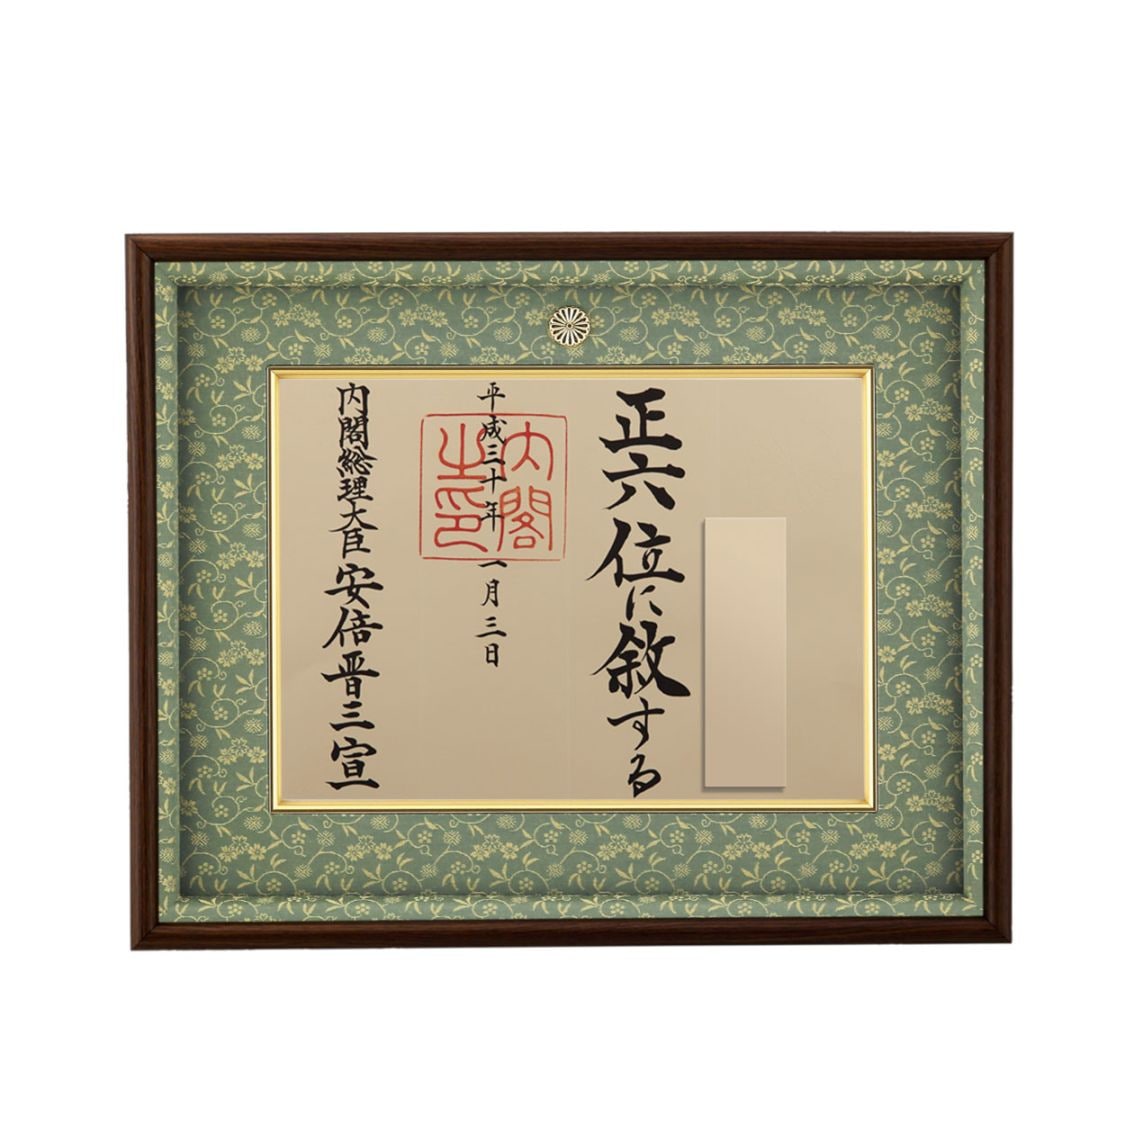 正六位に敘する
平成三十年一月三日
内閣之印
内閣総理大臣安倍晋三宣